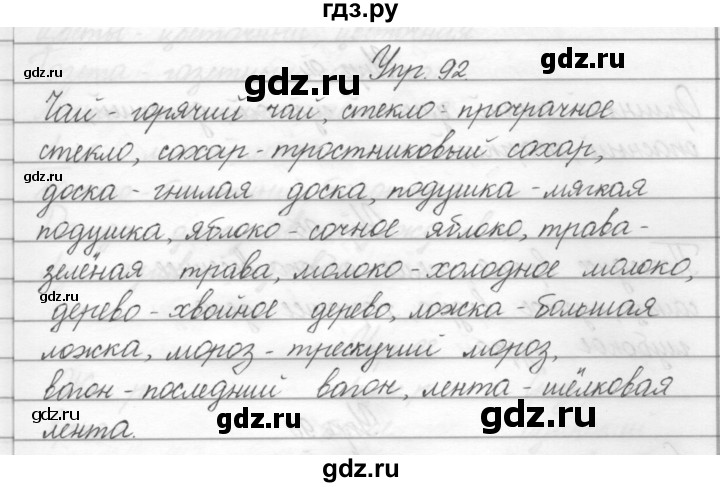 гдз.ру
gdz.ru gdz.ru gdz.ru
Упр. 92
Чай - горячий чай, стекло - прозрачное
стекло, сахар - тростниковый сахар,
gdz.ru gdz.ru
доска - гнилая доска, подушка - мягкая
gdz.ru
подушка, яблоко - сочное яблоко, трава -
gdz.ru
зелёная трава, молоко - холодное молоко,
gdz.ru gdz.ru gdz.ru
дерево - хвойное дерево, ложка - большая
ложка, мороз - трескучий мороз,
gdz.ru gdz.ru
вагон - последний вагон, лента - шёлковая
gdz.ru gdz.ru gdz.ru
лента.
gdz.ru